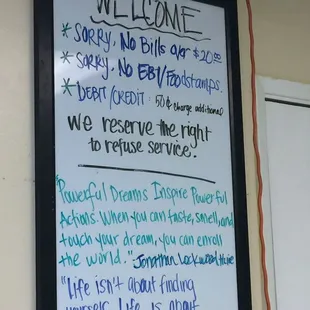 WELCOME
* SORRY, No Bills over $20.00
* SORRY, No EBT/Foodstamps.
* DEBIT/CREDIT: 50¢ charge additional
We reserve the right
to refuse service.
"Powerful Dreams Inspire Powerful
Actions. When you can taste, smell, and
touch your dream, you can enroll
the world." - Jonathan Lockwood Huie
"Life isn't about finding
yourself. Life is about